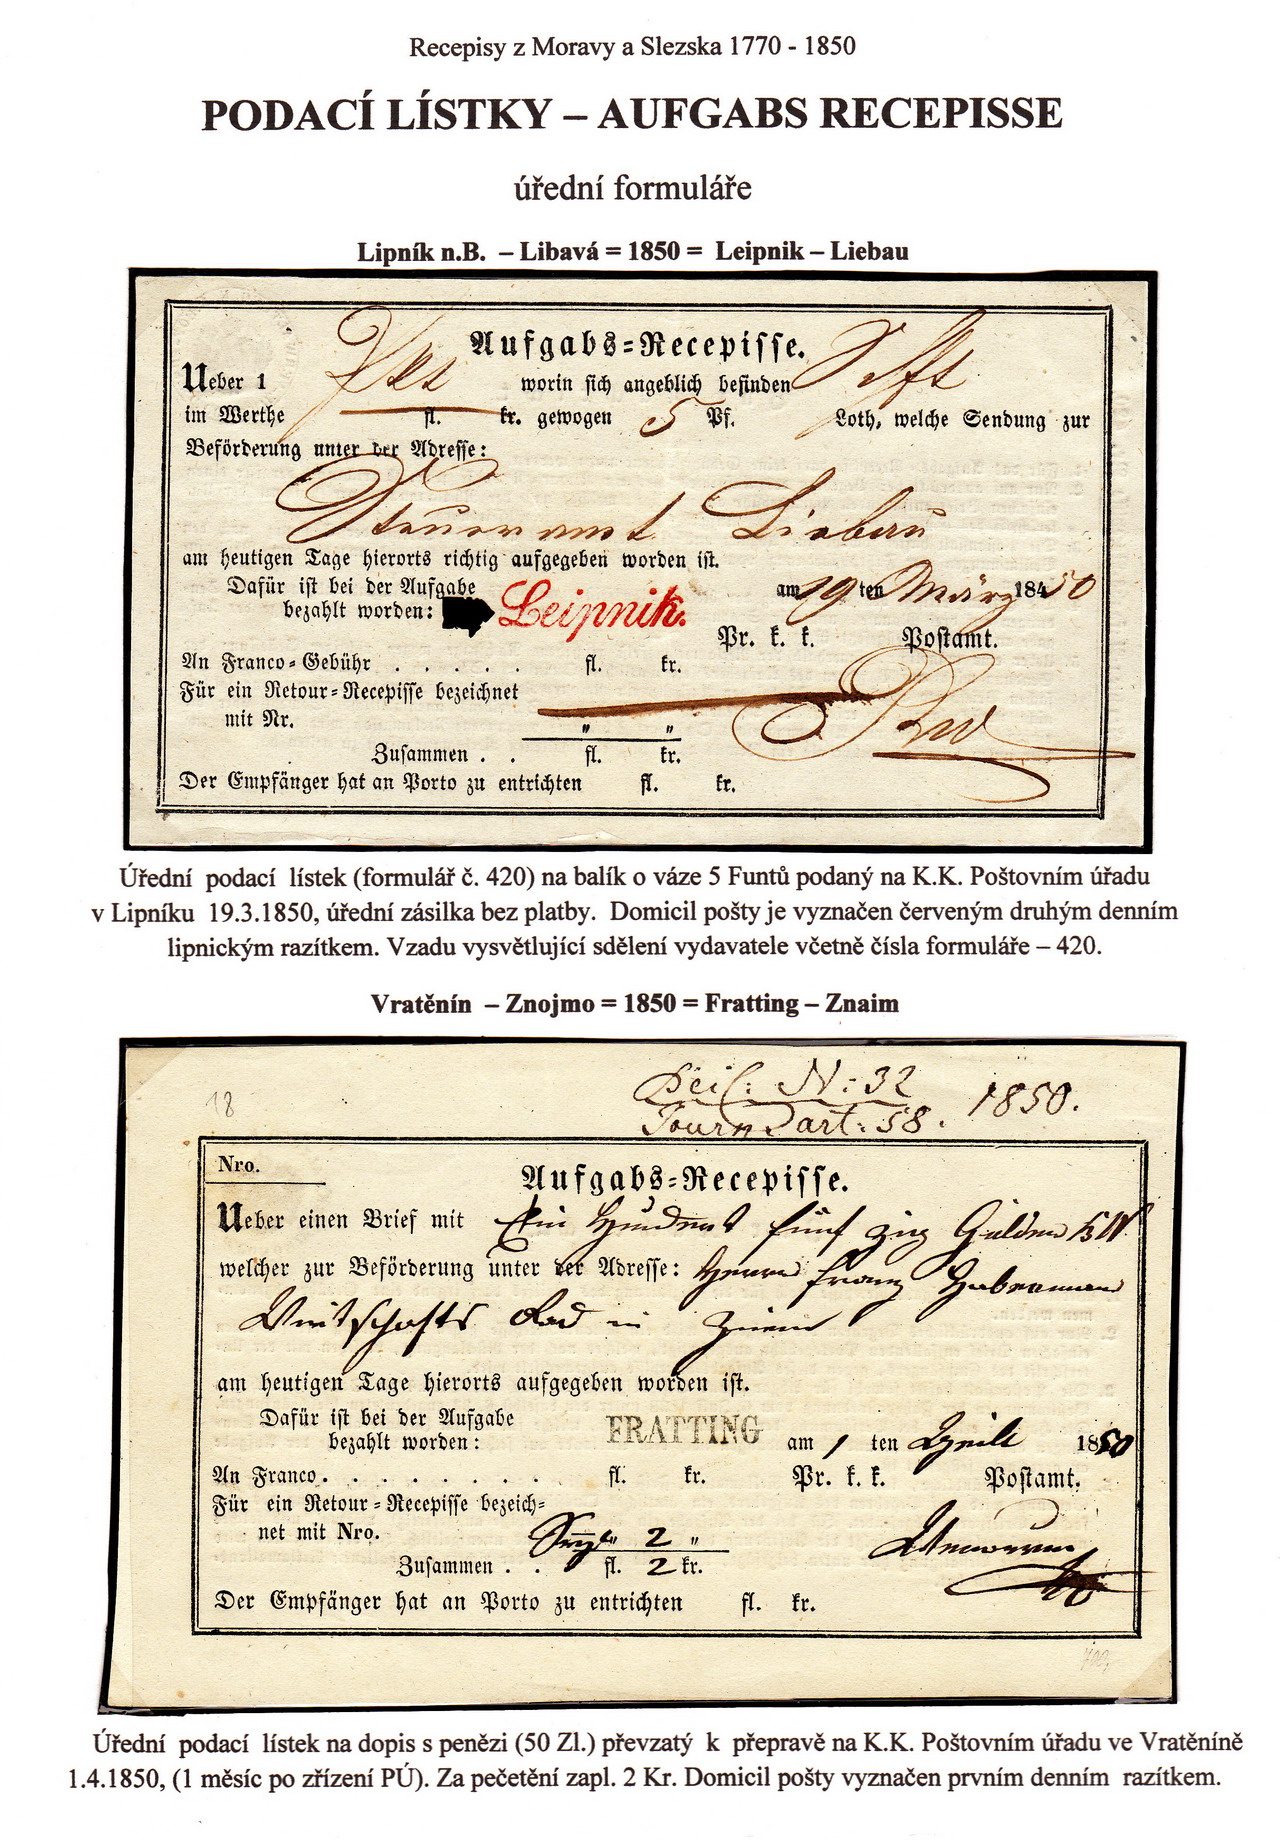 Recepisy z Moravy a Slezska 1770 - 1850
PODACÍ LÍSTKY – AUFGABS RECEPISSE
úřední formuláře
Lipník n.B. – Libavá = 1850 = Leipnik – Liebau
Aufgabs=Recepisse.
Ueber 1 worin sich angeblich befinden
im Werthe fl. kr. gewogen 5 Pf. Loth, welche Sendung zur
Beförderung unter der Adresse:
Steueramt Liebau
am heutigen Tage hierorts richtig aufgegeben worden ist.
Dafür ist bei der Aufgabe am 19 ten März 184 50
bezahlt worden: Leipnik.
Pr. k. k. Postamt.
An Franco=Gebühr . . . . . fl. kr.
Für ein Retour=Recepisse bezeichnet
mit Nr. " "
Zusammen . . fl. kr.
Der Empfänger hat an Porto zu entrichten fl. kr.
Úřední podací lístek (formulář č. 420) na balík o váze 5 Funtů podaný na K.K. Poštovním úřadu
v Lipníku 19.3.1850, úřední zásilka bez platby. Domicil pošty je vyznačen červeným druhým denním
lipnickým razítkem. Vzadu vysvětlující sdělení vydavatele včetně čísla formuláře – 420.
Vratěnín – Znojmo = 1850 = Fratting – Znaim
18
Beil: N: 32 1850.
Journ art: 58.
Nro.
Aufgabs=Recepisse.
Ueber einen Brief mit Ein Hundert fünf zig Gulden
welcher zur Beförderung unter der Adresse: Herrn Franz
Wirtschafts Rad in Znaim
am heutigen Tage hierorts aufgegeben worden ist.
Dafür ist bei der Aufgabe FRATTING
bezahlt worden: am 1 ten April 1850
An Franco . . . . . . . fl. kr. Pr. k. k. Postamt.
Für ein Retour=Recepisse bezeich=
net mit Nro. " 2 "
Zusammen . . fl. 2 kr.
Der Empfänger hat an Porto zu entrichten fl. kr.
Úřední podací lístek na dopis s penězi (50 Zl.) převzatý k přepravě na K.K. Poštovním úřadu ve Vratěníně
1.4.1850, (1 měsíc po zřízení PÚ). Za pečetění zapl. 2 Kr. Domicil pošty vyznačen prvním denním razítkem.